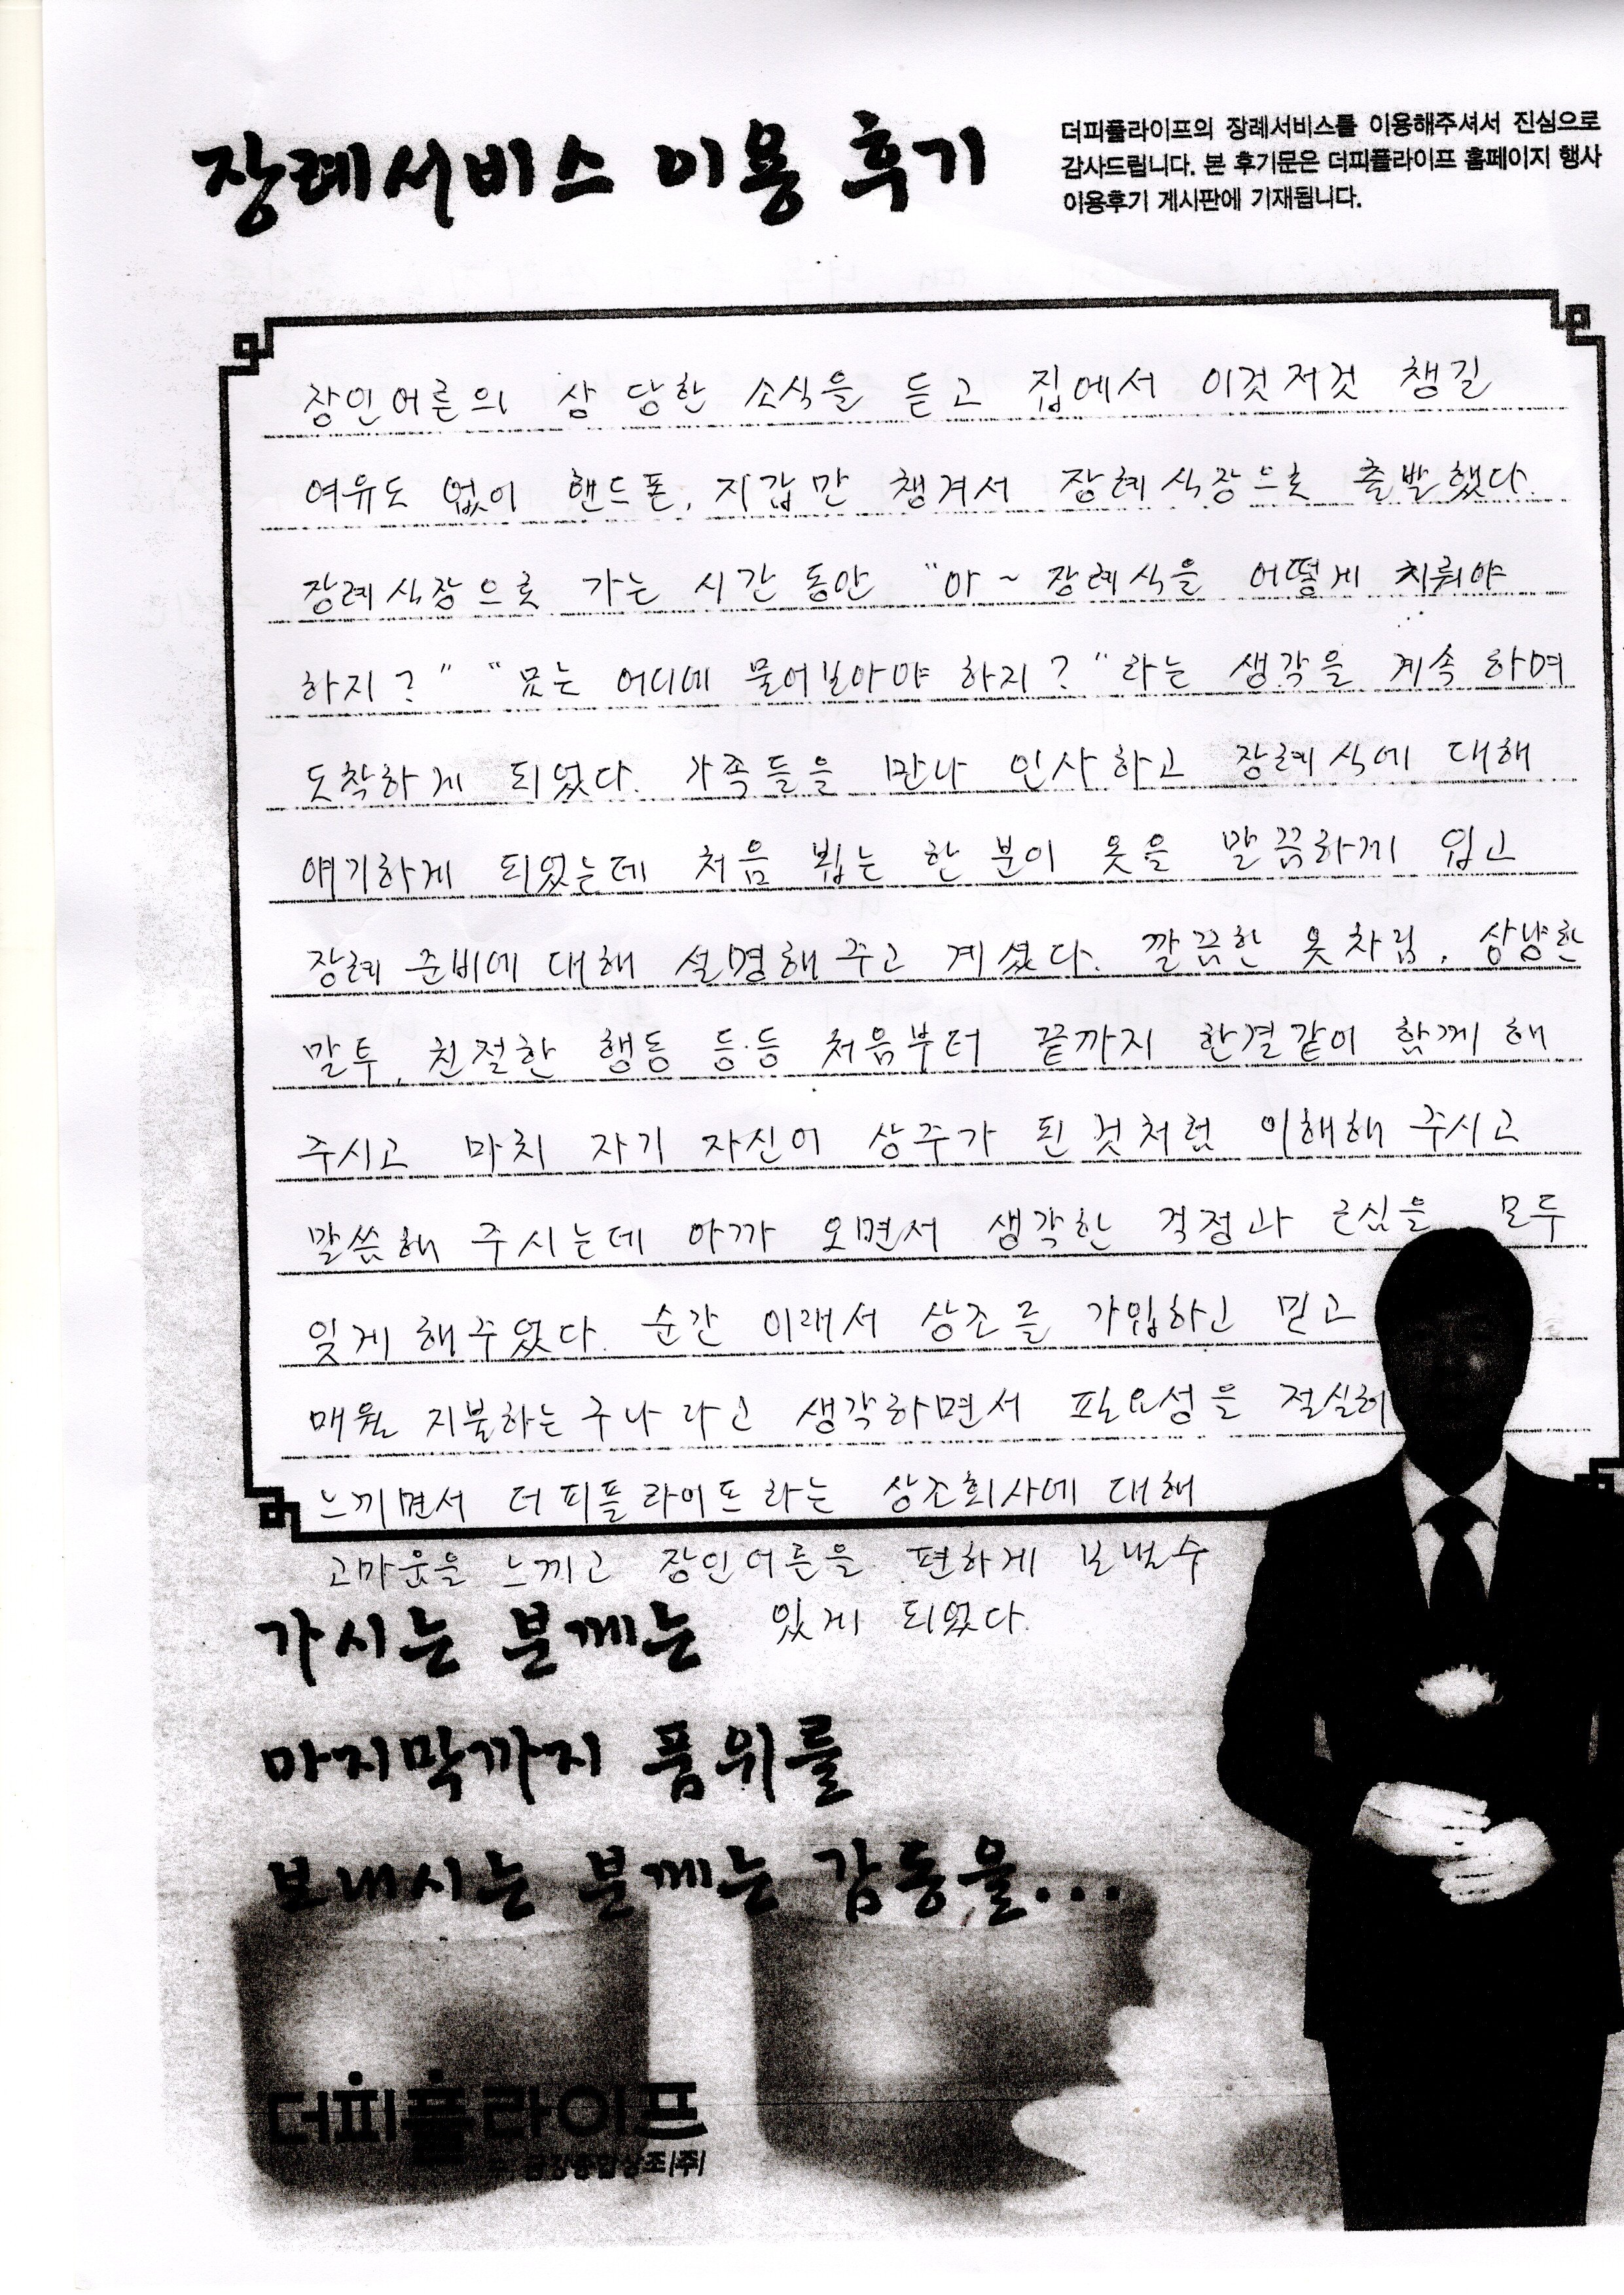 장례서비스 이용 후기
더피플라이프의 장례서비스를 이용해주셔서 진심으로
감사드립니다. 본 후기문은 더피플라이프 홈페이지 행사
이용후기 게시판에 기재됩니다.
장인어른의 상 당한 소식을 듣고 집에서 이것저것 챙길
여유도 없이 핸드폰, 지갑만 챙겨서 장례식장으로 출발했다.
장례식장으로 가는 시간 동안 "아~ 장례식을 어떻게 치뤄야
하지?" "묘는 어디에 물어보아야 하지?"라는 생각을 계속 하며
도착하게 되었다. 가족들을 만나 인사하고 장례식에 대해
얘기하게 되었는데 처음 뵙는 한 분이 옷을 말끔하게 입고
장례 준비에 대해 설명해 주고 계셨다. 깔끔한 옷차림, 상냥한
말투, 친절한 행동 등등 처음부터 끝까지 한결같이 함께 해
주시고 마치 자기 자신이 상주가 된것처럼 이해해 주시고
말씀해 주시는데 아까 오면서 생각한 걱정과 근심을 모두
잊게 해주었다. 순간 이래서 상조를 가입하고 믿고
매월 지불하는구나 라고 생각하면서 필요성을 절실히
느끼면서 더피플라이프라는 상조회사에 대해
고마움을 느끼고 장인어른을 편하게 보낼수
있게 되었다.
가시는 분께는
마지막까지 품위를
보내시는 분께는 감동을...
더피플라이프